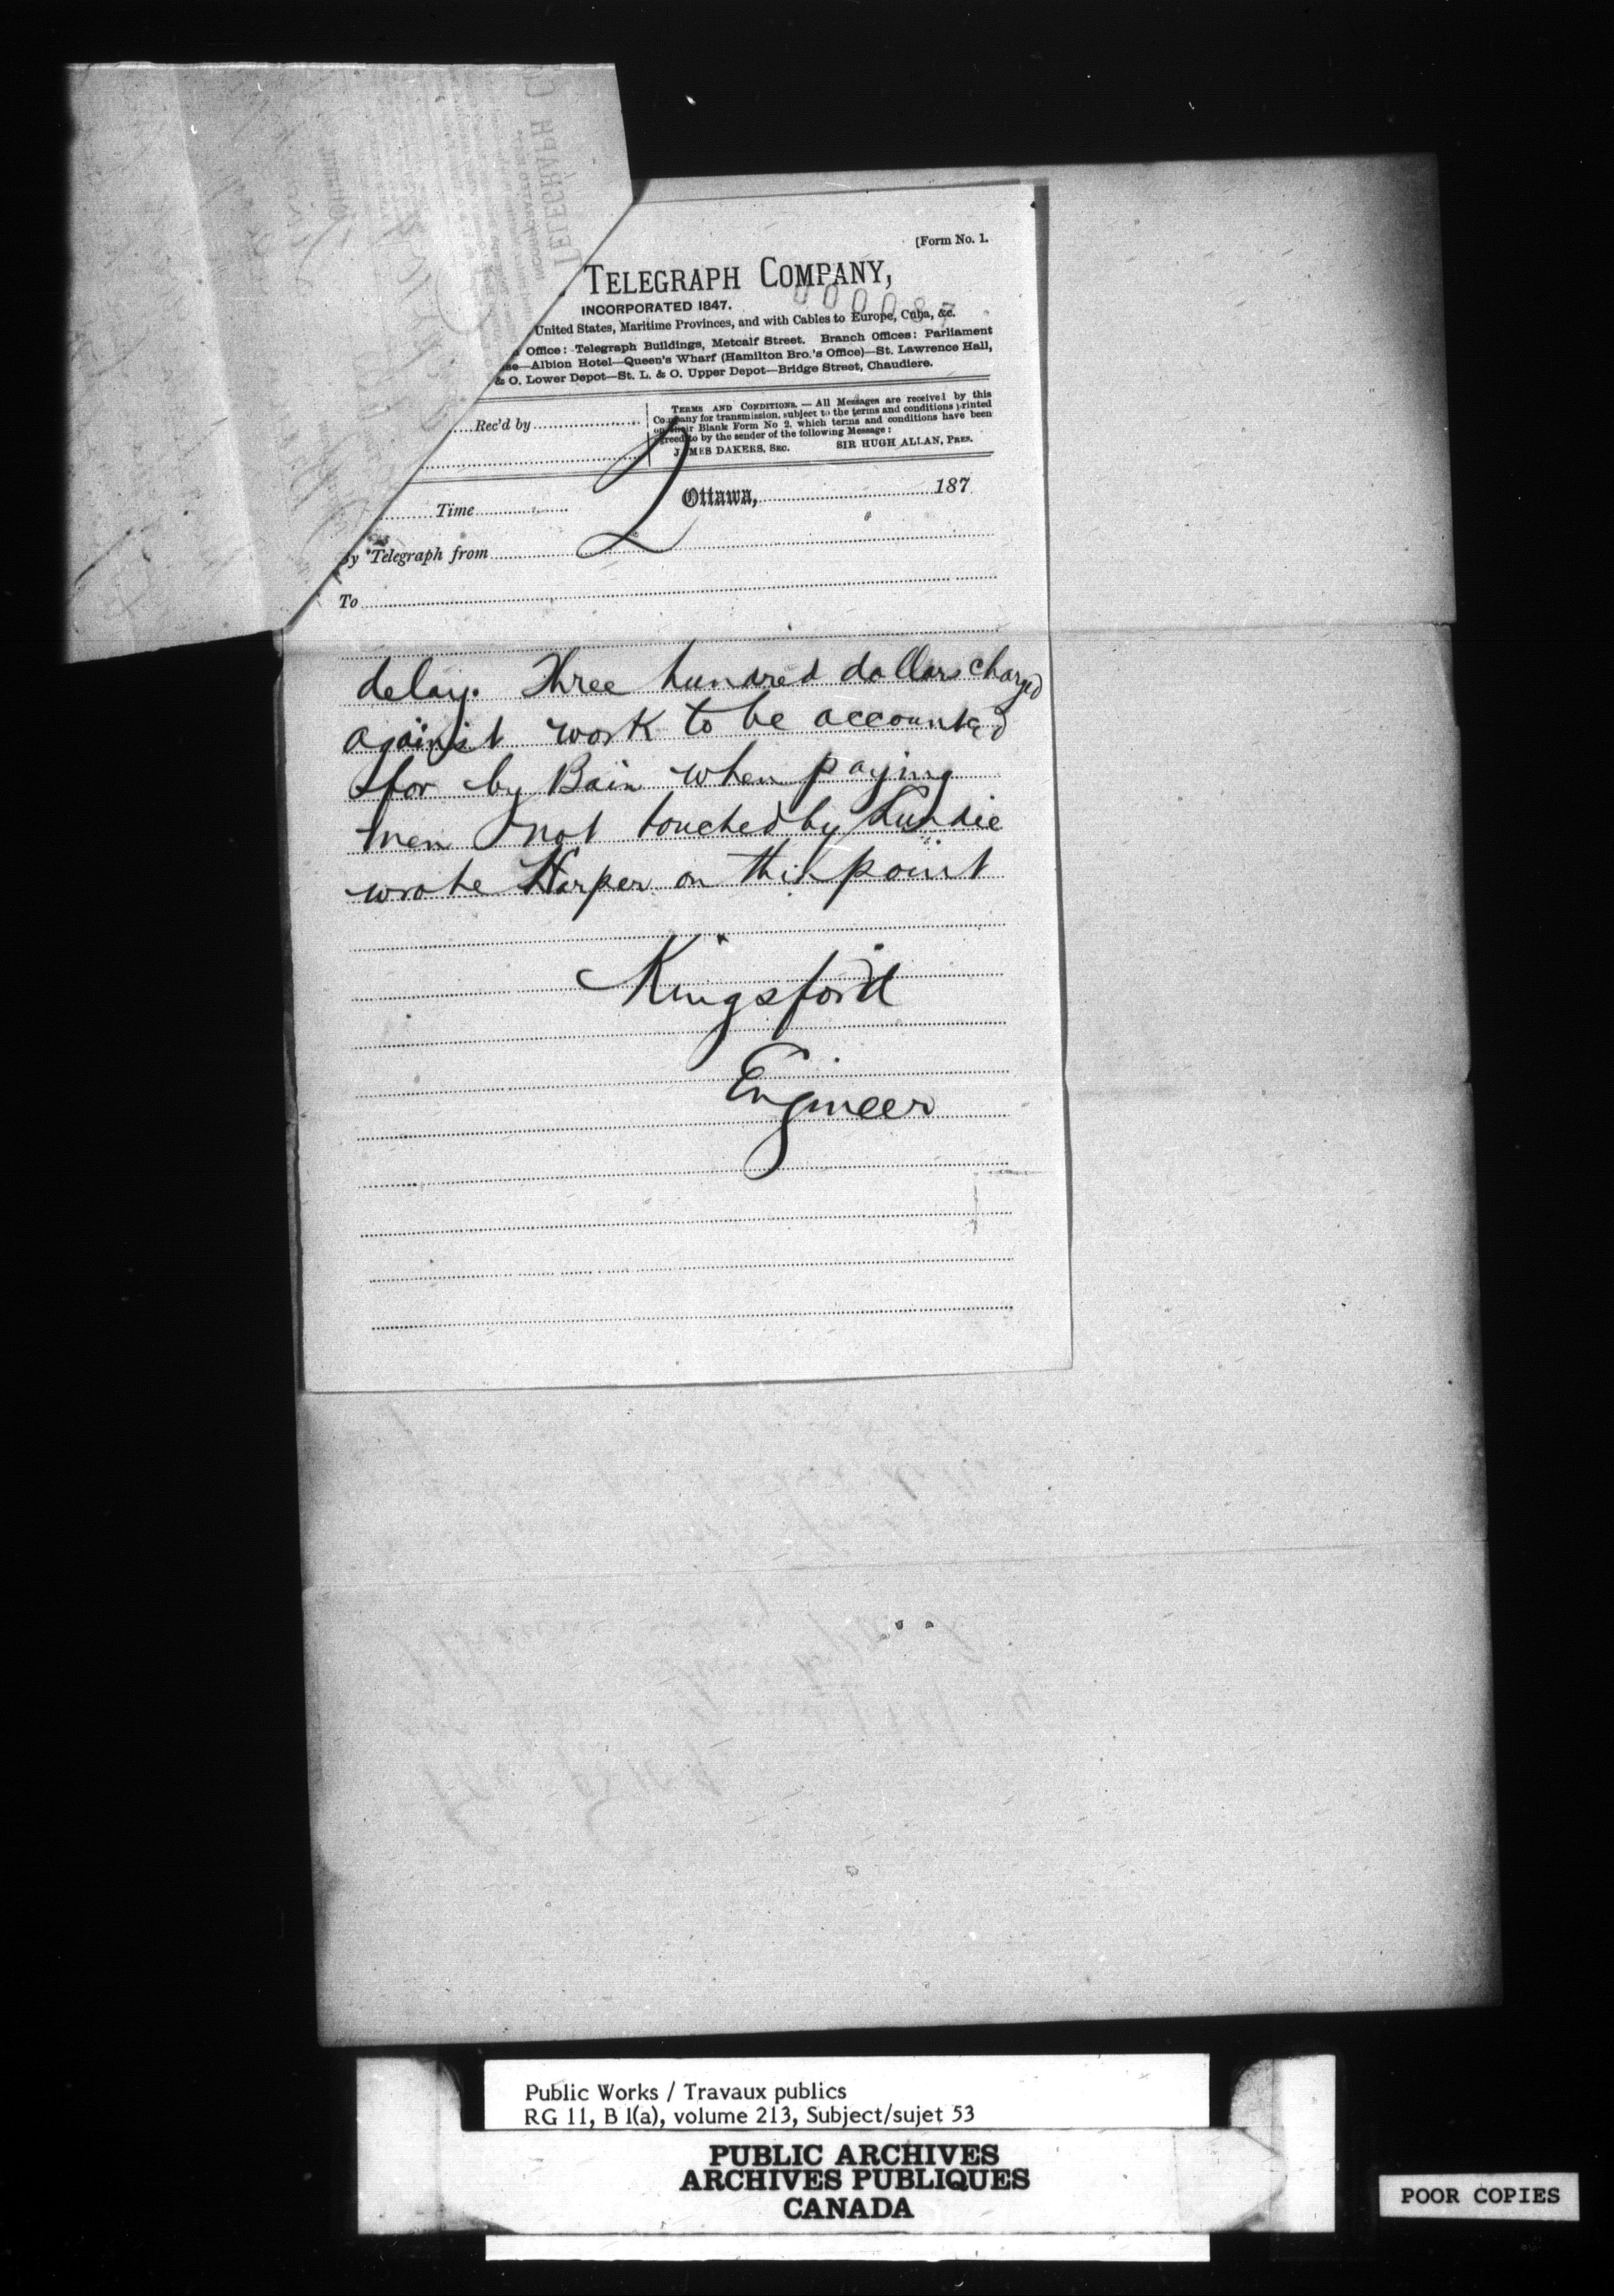 [Form No. 1.
TELEGRAPH COMPANY,
INCORPORATED 1847.
000087
United States, Maritime Provinces, and with Cables to Europe, Cuba, &c.
Office: Telegraph Buildings, Metcalf Street. Branch Offices: Parliament
se—Albion Hotel—Queen's Wharf (Hamilton Bro.'s Office)—St. Lawrence Hall,
& O. Lower Depot—St. L. & O. Upper Depot—Bridge Street, Chaudiere.
Rec'd by
TERMS AND CONDITIONS. — All Messages are received by this
Company for transmission, subject to the terms and conditions printed
on their Blank Form No 2, which terms and conditions have been
agreed to by the sender of the following Message:
JAMES DAKERS, SEC. SIR HUGH ALLAN, PRES.
2
Time Ottawa, 187
By Telegraph from
To
delay. Three hundred dollars charged
against work to be accounted
for by Bain when paying
men not touched by Lundie
wrote Harper on this point
Kingsford
Engineer
Public Works / Travaux publics
RG 11, B 1(a), volume 213, Subject/sujet 53
PUBLIC ARCHIVES
ARCHIVES PUBLIQUES
CANADA
POOR COPIES